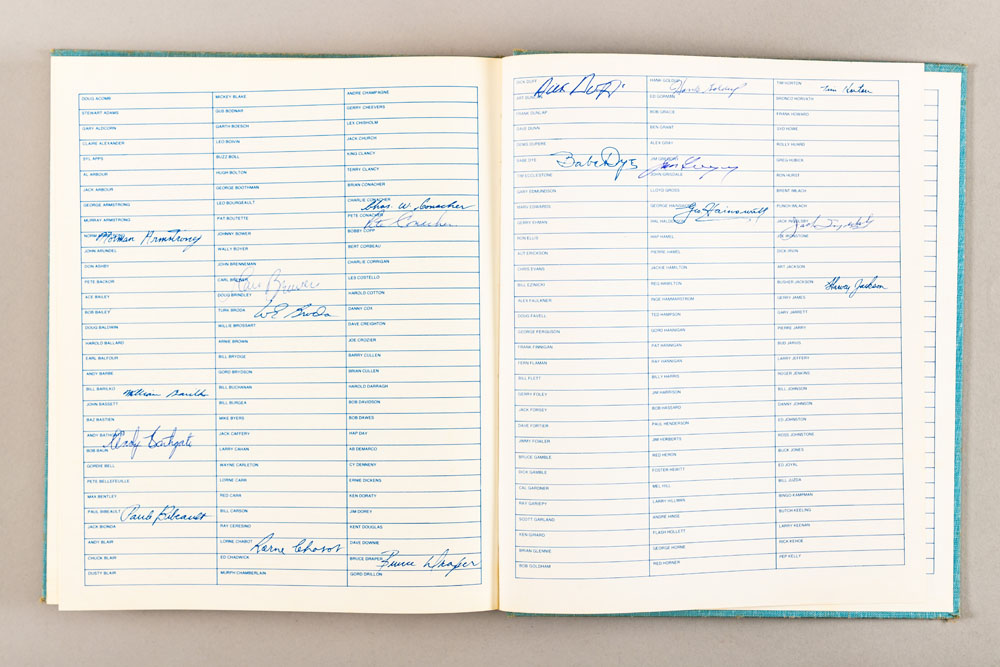 DOUG ACOMB
STEWART ADAMS
GARY ALDCORN
CLAIRE ALEXANDER
SYL APPS
AL ARBOUR
JACK ARBOUR
GEORGE ARMSTRONG
MURRAY ARMSTRONG
NORM Norman Armstrong
JOHN ARUNDEL
DON ASHBY
PETE BACKOR
ACE BAILEY
BOB BAILEY
DOUG BALDWIN
HAROLD BALLARD
EARL BALFOUR
ANDY BARBE
BILL BARILKO William Barilko
JOHN BASSETT
BAZ BASTIEN
ANDY BATHGATE Andy Bathgate
BOB BAUN
GORDIE BELL
PETE BELLEFEUILLE
MAX BENTLEY
PAUL BIBEAULT Paul Bibeault
JACK BIONDA
ANDY BLAIR
CHUCK BLAIR
DUSTY BLAIR
MICKEY BLAKE
GUS BODNAR
GARTH BOESCH
LEO BOIVIN
BUZZ BOLL
HUGH BOLTON
GEORGE BOOTHMAN
LEO BOURGEAULT
PAT BOUTETTE
JOHNNY BOWER
WALLY BOYER
JOHN BRENNEMAN
CARL BREWER Carl Brewer
DOUG BRINDLEY
TURK BRODA WE Broda
WILLIE BROSSART
ARNIE BROWN
BILL BRYDGE
GORD BRYDSON
BILL BUCHANAN
BILL BURGEA
MIKE BYERS
JACK CAFFERY
LARRY CAHAN
WAYNE CARLETON
LORNE CARR
RED CARR
BILL CARSON
RAY CEREDINO
LORNE CHABOT Lorne Chabot
ED CHADWICK
MURPH CHAMBERLAIN
ANDRE CHAMPAGNE
GERRY CHEEVERS
LEX CHISHOLM
JACK CHURCH
KING CLANCY
TERRY CLANCY
BRIAN CONACHER
CHARLIE CONACHER Chas. W. Conacher
PETE CONACHER Pete Conacher
BOBBY COPP
BERT CORBEAU
CHARLIE CORRIGAN
LES COSTELLO
HAROLD COTTON
DANNY COX
DAVE CREIGHTON
JOE CROZIER
BARRY CULLEN
BRIAN CULLEN
HAROLD DARRAGH
BOB DAVIDSON
BOB DAWES
HAP DAY
AB DEMARCO
CY DENNENY
ERNIE DICKENS
KEN DORATY
JIM DOREY
KENT DOUGLAS
DAVE DOWNIE
BRUCE DRAPER Bruce Draper
GORD DRILLON
DICK DUFF Dick Duff
ART DUNCAN
FRANK DUNLAP
DAVE DUNN
DENIS DUPERE
BABE DYE Babe Dye
TIM ECCLESTONE
GARY EDMUNDSON
MARV EDWARDS
GERRY EHMAN
RON ELLIS
AUT ERICKSON
CHRIS EVANS
BILL EZINICKI
ALEX FAULKNER
DOUG FAVELL
GEORGE FERGUSON
FRANK FINNIGAN
FERN FLAMAN
BILL FLETT
GERRY FOLEY
JACK FORSEY
DAVE FORTIER
JIMMY FOWLER
BRUCE GAMBLE
DICK GAMBLE
CAL GARDNER
RAY GARIEPY
SCOTT GARLAND
KEN GIRARD
BRIAN GLENNIE
BOB GOLDHAM
HANK GOLDUP Hank Goldup
ED GORMAN
BOB GRACIE
BEN GRANT
ALEX GRAY
JIM GREGORY Jim Gregory
JOHN GRISDALE
LLOYD GROSS
GEORGE HAINSWORTH Geo Hainsworth
HAL
HAP HAMEL
PIERRE HAMEL
JACKIE HAMILTON
REG HAMILTON
INGE HAMMARSTROM
TED HAMPSON
GORD HANNIGAN
PAT HANNIGAN
RAY HANNIGAN
BILLY HARRIS
JIM HARRISON
BOB HASSARD
PAUL HENDERSON
JIM HERBERTS
RED HERON
FOSTER HEWITT
MEL HILL
LARRY HILLMAN
ANDRE HINSE
FLASH HOLLETT
GEORGE HORNE
RED HORNER
TIM HORTON Tim Horton
BRONCO HORVATH
FRANK HOWARD
SYD HOWE
ROLLY HUARD
GREG HUBICK
RON HURST
BRENT IMLACH
PUNCH IMLACH
JACK
JIM IRONSTONE
DICK IRVIN
ART JACKSON
BUSHER JACKSON Harvey Jackson
GERRY JAMES
GARY JARRETT
PIERRE JARRY
BUD JARVIS
LARRY JEFFERY
ROGER JENKINS
BILL JOHNSON
DANNY JOHNSON
ED JOHNSTON
ROSS JOHNSTONE
BUCK JONES
ED JOYAL
BILL JUZDA
BINGO KAMPMAN
BUTCH KEELING
LARRY KEENAN
RICK KEHOE
PEP KELLY